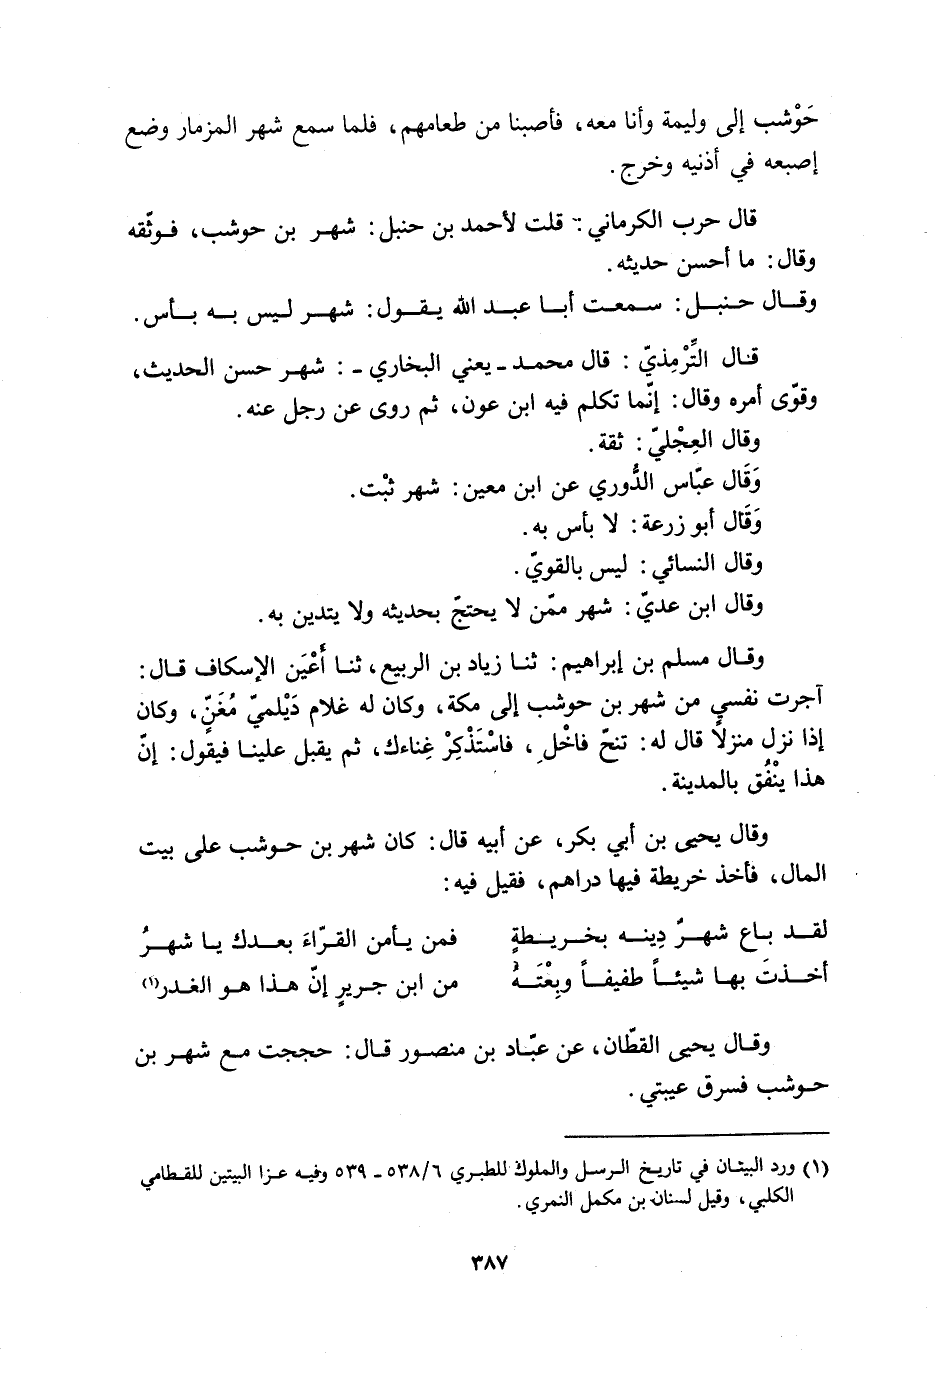 حَوْشب إلى وليمة وأنا معه، فأصبنا من طعامهم، فلما سمع شهر المزمار وضع
إصبعه في أذنيه وخرج.
قال حرب الكرماني: قلت لأحمد بن حنبل: شهر بن حوشب، فوثّقه
وقال: ما أحسن حديثه.
وقال حنبل: سمعت أبا عبد الله يقول: شهر ليس به بأس.
قال التِّرْمِذيّ: قال محمد - يعني البخاري -: شهر حسن الحديث،
وقوّى أمره وقال: إنّما تكلم فيه ابن عون، ثم روى عن رجل عنه.
وقال العِجْليّ: ثقة.
وَقَال عبّاس الدُّوري عن ابن معين: شهر ثبْت.
وَقَال أبو زرعة: لا بأس به.
وقال النسائي: ليس بالقويّ.
وقال ابن عديّ: شهر ممّن لا يحتجّ بحديثه ولا يتدين به.
وقال مسلم بن إبراهيم: ثنا زياد بن الربيع، ثنا أَعْيَن الإسكاف قال:
آجرت نفسي من شهر بن حوشب إلى مكة، وكان له غلام دَيْلميّ مُغَنٍّ، وكان
إذا نزل منزلاً قال له: تنحّ فاخْلِ، فاسْتَذْكِرْ غِناءك، ثم يقبل علينا فيقول: إنّ
هذا ينْفُق بالمدينة.
وقال يحيى بن أبي بكر، عن أبيه قال: كان شهر بن حوشب على بيت
المال، فأخذ خريطة فيها دراهم، فقيل فيه:
لقد باع شهرٌ دِينه بخريطةٍ فمن يأمن القرّاءَ بعدك يا شهرُ
أخذتَ بها شيئاً طفيفاً وبِعْتَهُ من ابن جريرٍ إنّ هذا هو الغدر(١)
وقال يحيى القطّان، عن عبّاد بن منصور قال: حججت مع شهر بن
حوشب فسرق عيبتي.
(١) ورد البيتان في تاريخ الرسل والملوك للطبري ٥٣٨/٦ - ٥٣٩ وفيه عزا البيتين للقطامي
الكلبي، وقيل لسنان بن مكمل النمري.
٣٨٧